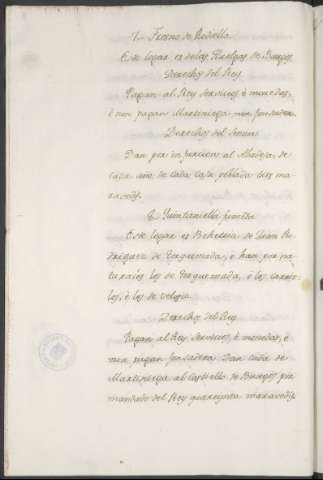 Fresno de Rodiella
Este logar es de las Huelgas de Burgos
Derechos del Rey
Pagan al Rey servicios è monedas,
è non pagan Martiniega nin fonsadera
Derechos del Senor
Dan por infurcion al Abadesa de
cada año de cada casa poblada tres ma
ravedis.
Quintaniella
Este logar es Behetria de Juan Ro
driguez de Torquemada, è han por na
turales los de Torquemada, è los carre
los, è los de
Derechos del Rey
Pagan al Rey servicios, è monedas, è
non pagan fonsadera Dan cada de
Martiniega al Castiello de Burgos por
mandado del Rey quarenta maravedis